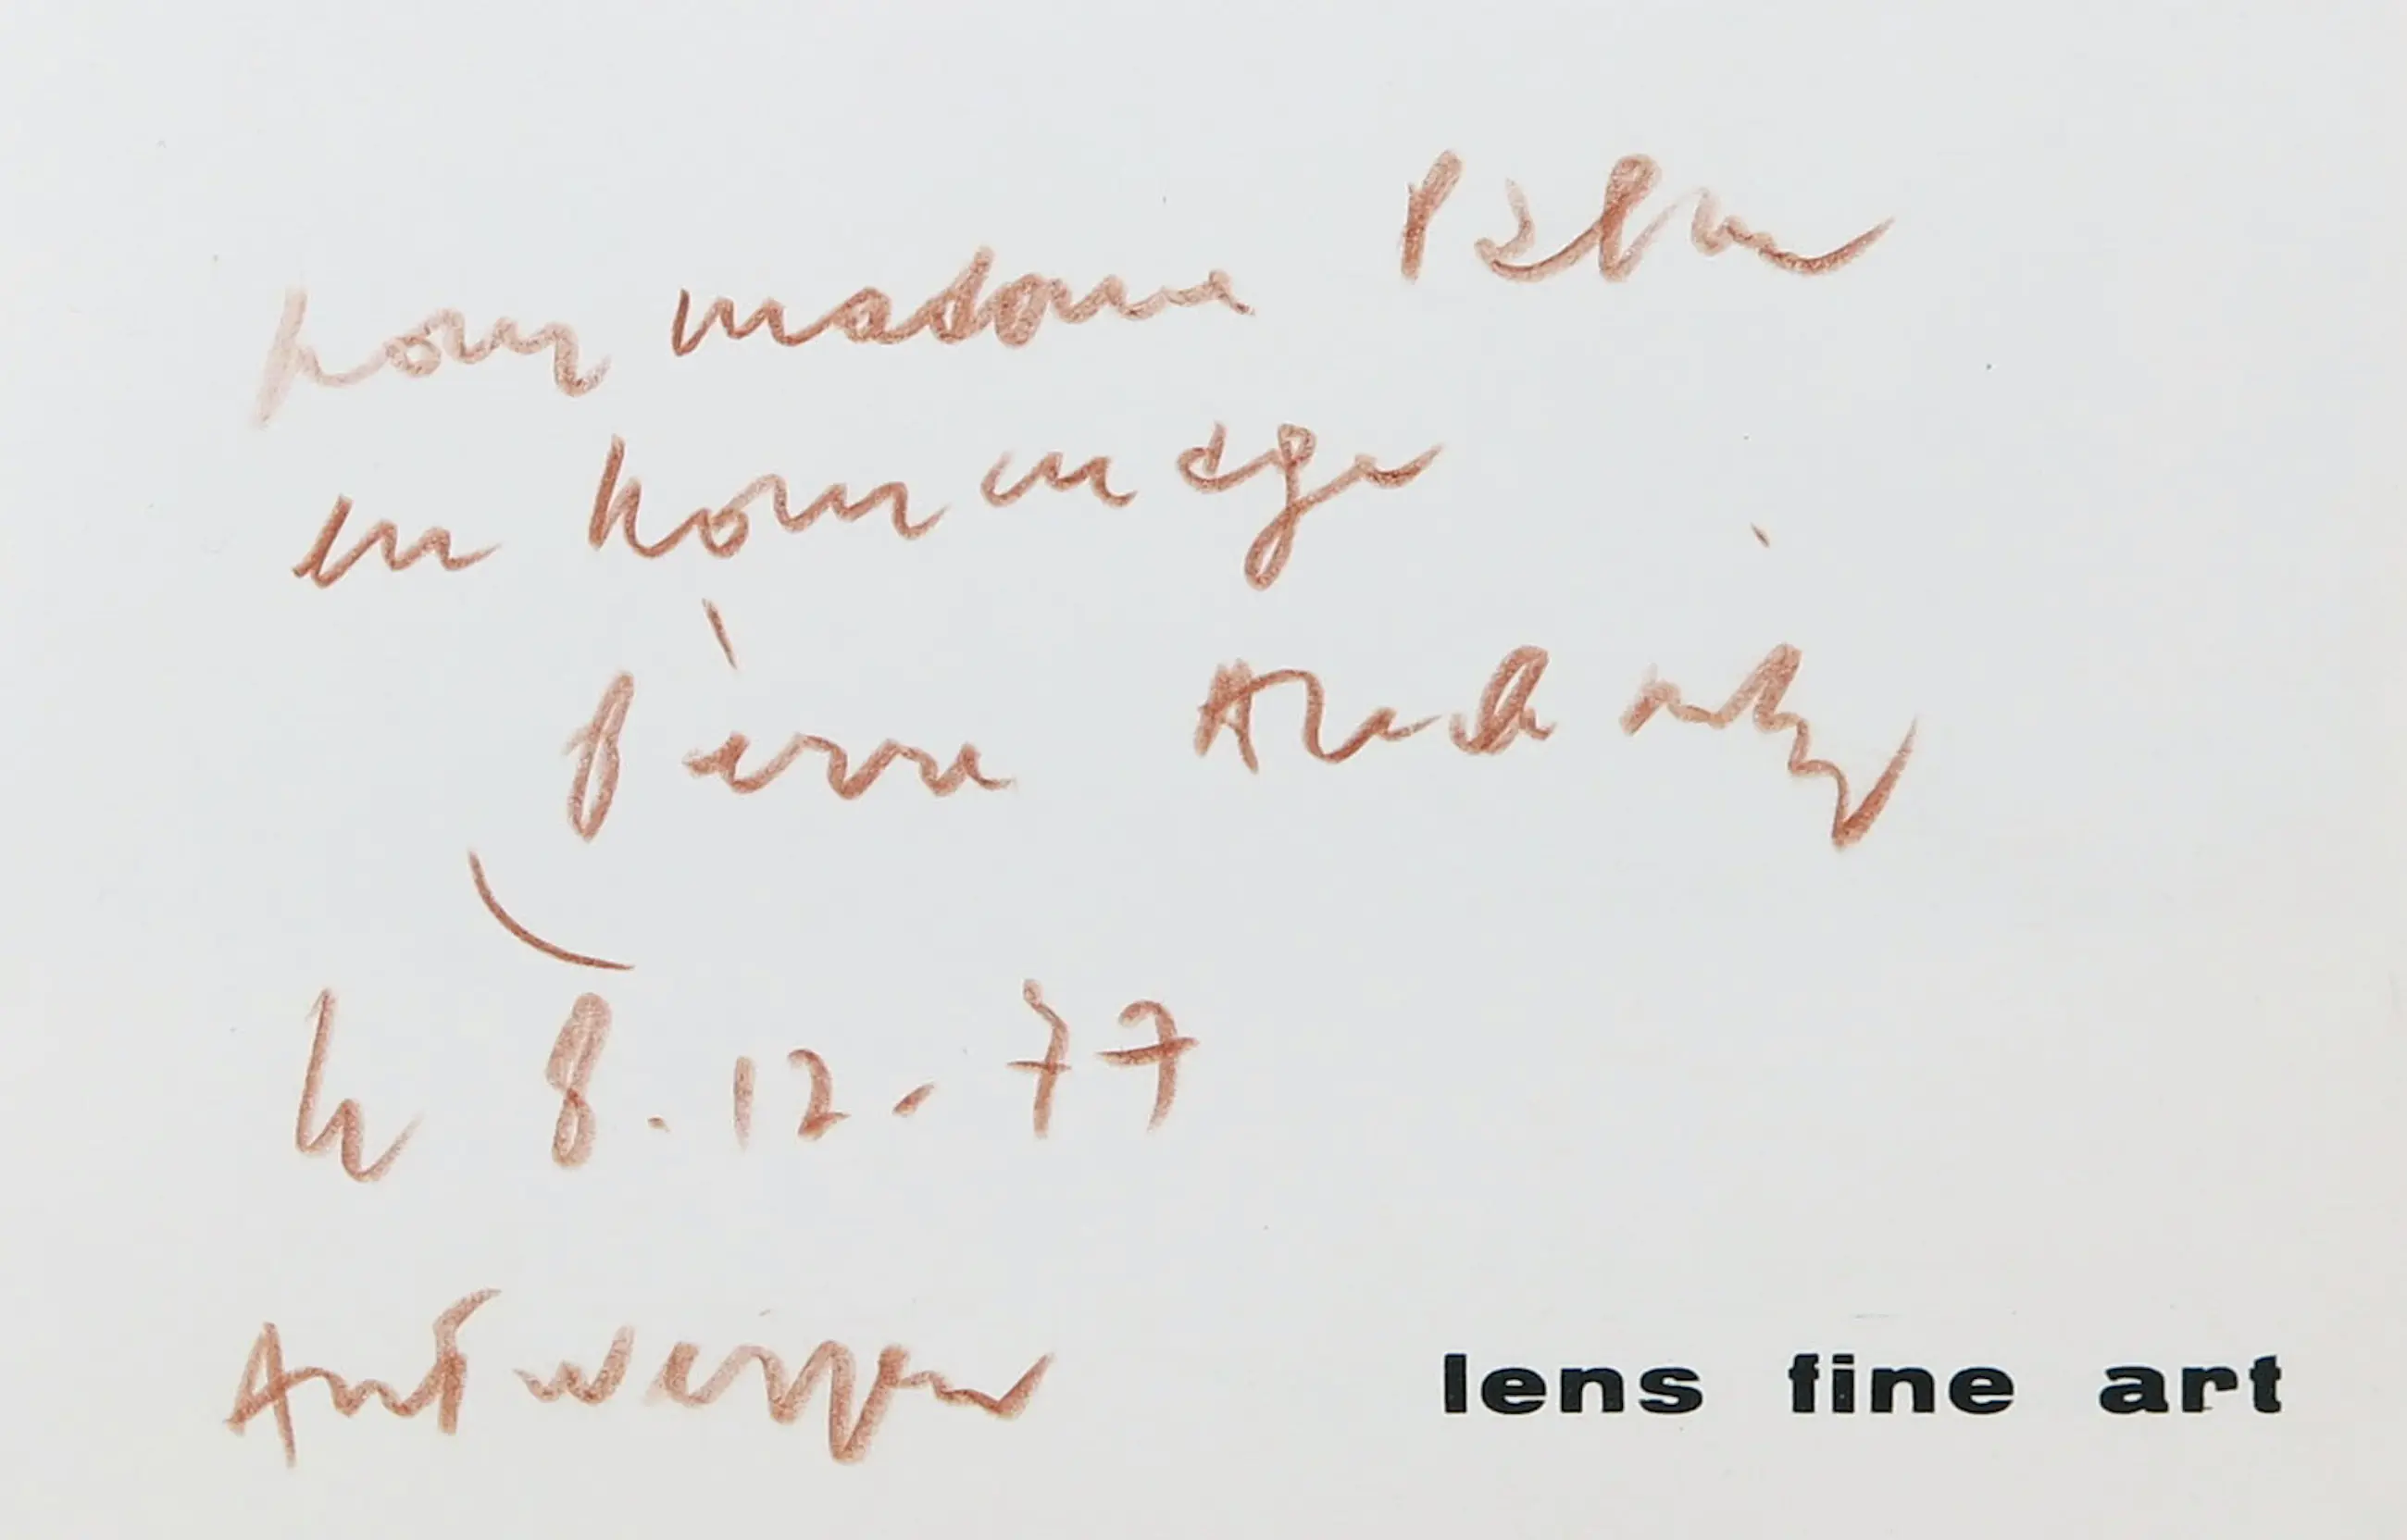 pour madame
en hommage
Pierre Alechinsky
le 8.12.77
Antwerpen
lens fine art